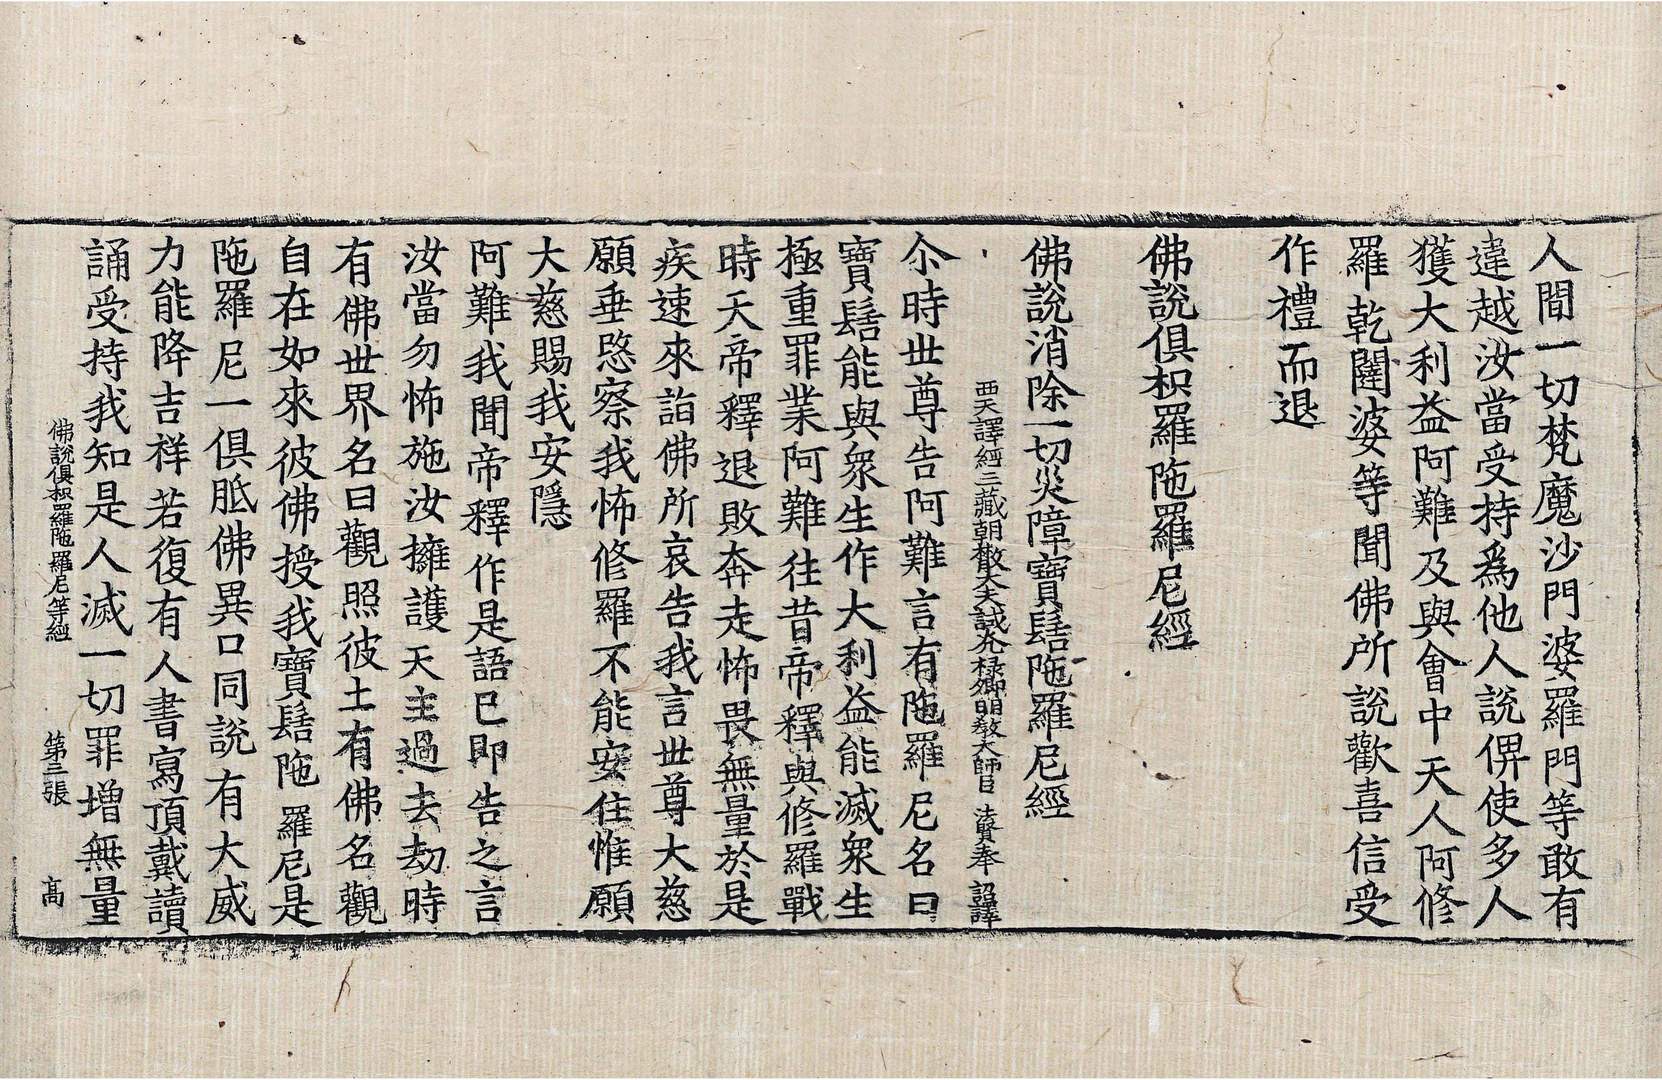 人間一切梵魔沙門婆羅門等敢有
違越汝當受持爲他人說俾使多人
獲大利益阿難及與會中天人阿修
羅乾闥婆等聞佛所說歡喜信受
作禮而退
佛說俱枳羅陁羅尼經
佛說消除一切災障寶髻陁羅尼經
西天譯經三藏朝散大夫試光祿卿明教大師臣 法賢奉 詔譯
尒時世尊告阿難言有陁羅尼名曰
寶髻能與衆生作大利益能滅衆生
極重罪業阿難往昔帝釋與修羅戰
時天帝釋退敗奔走怖畏無量於是
疾速來詣佛所哀告我言世尊大慈
願垂愍察我怖修羅不能安住惟願
大慈賜我安隱
阿難我聞帝釋作是語已即告之言
汝當勿怖施汝擁護天主過去劫時
有佛世界名曰觀照彼土有佛名觀
自在如來彼佛授我寶髻陁羅尼是
陁羅尼一俱胝佛異口同說有大威
力能降吉祥若復有人書寫頂戴讀
誦受持我知是人滅一切罪增無量
佛說俱枳羅陁羅尼等經 第三張 高